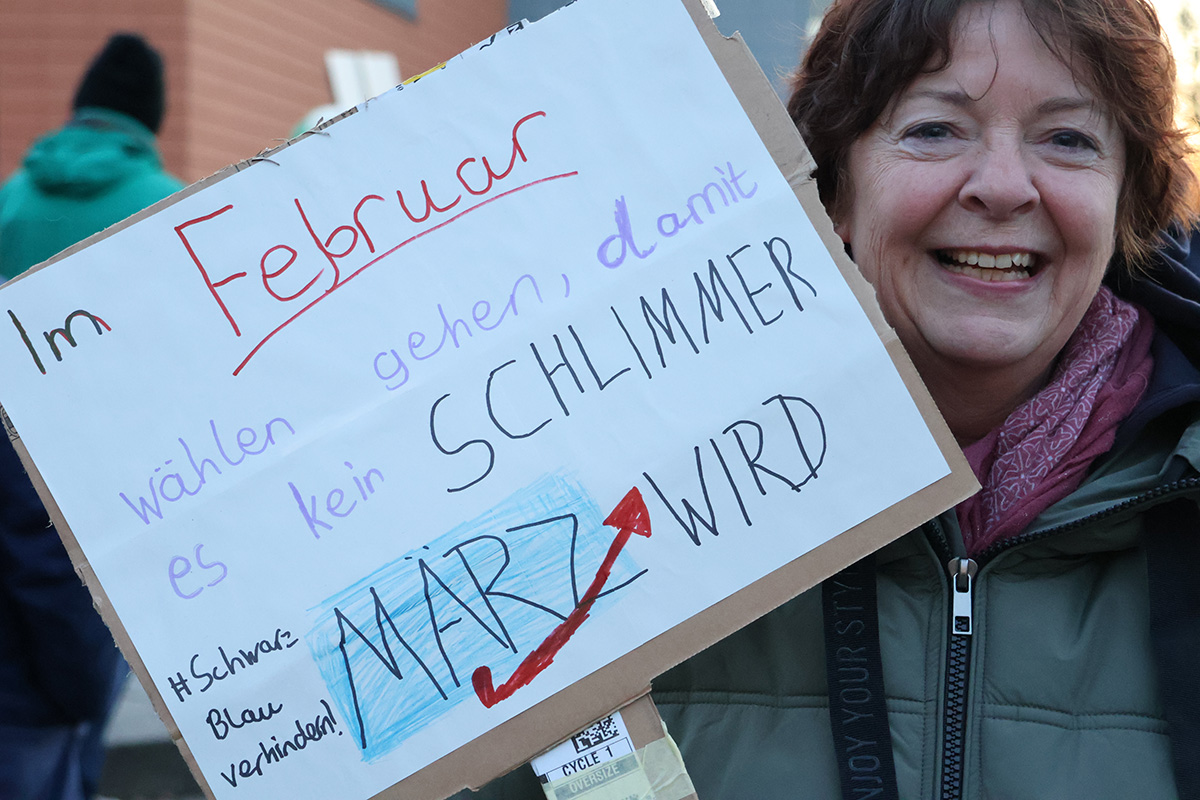 Im Februar
wählen gehen, damit
es kein SCHLIMMER
MÄRZ WIRD
#Schwarz
Blau
verhindern!
CYCLE 1
OVERSIZE
NJOY YOUR STY